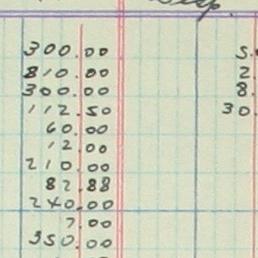 Disp.
300.00
810.00
300.00
112.50
60.00
12.00
210.00
82.88
240.00
7.00
350.00
5.
2.
8.
30.